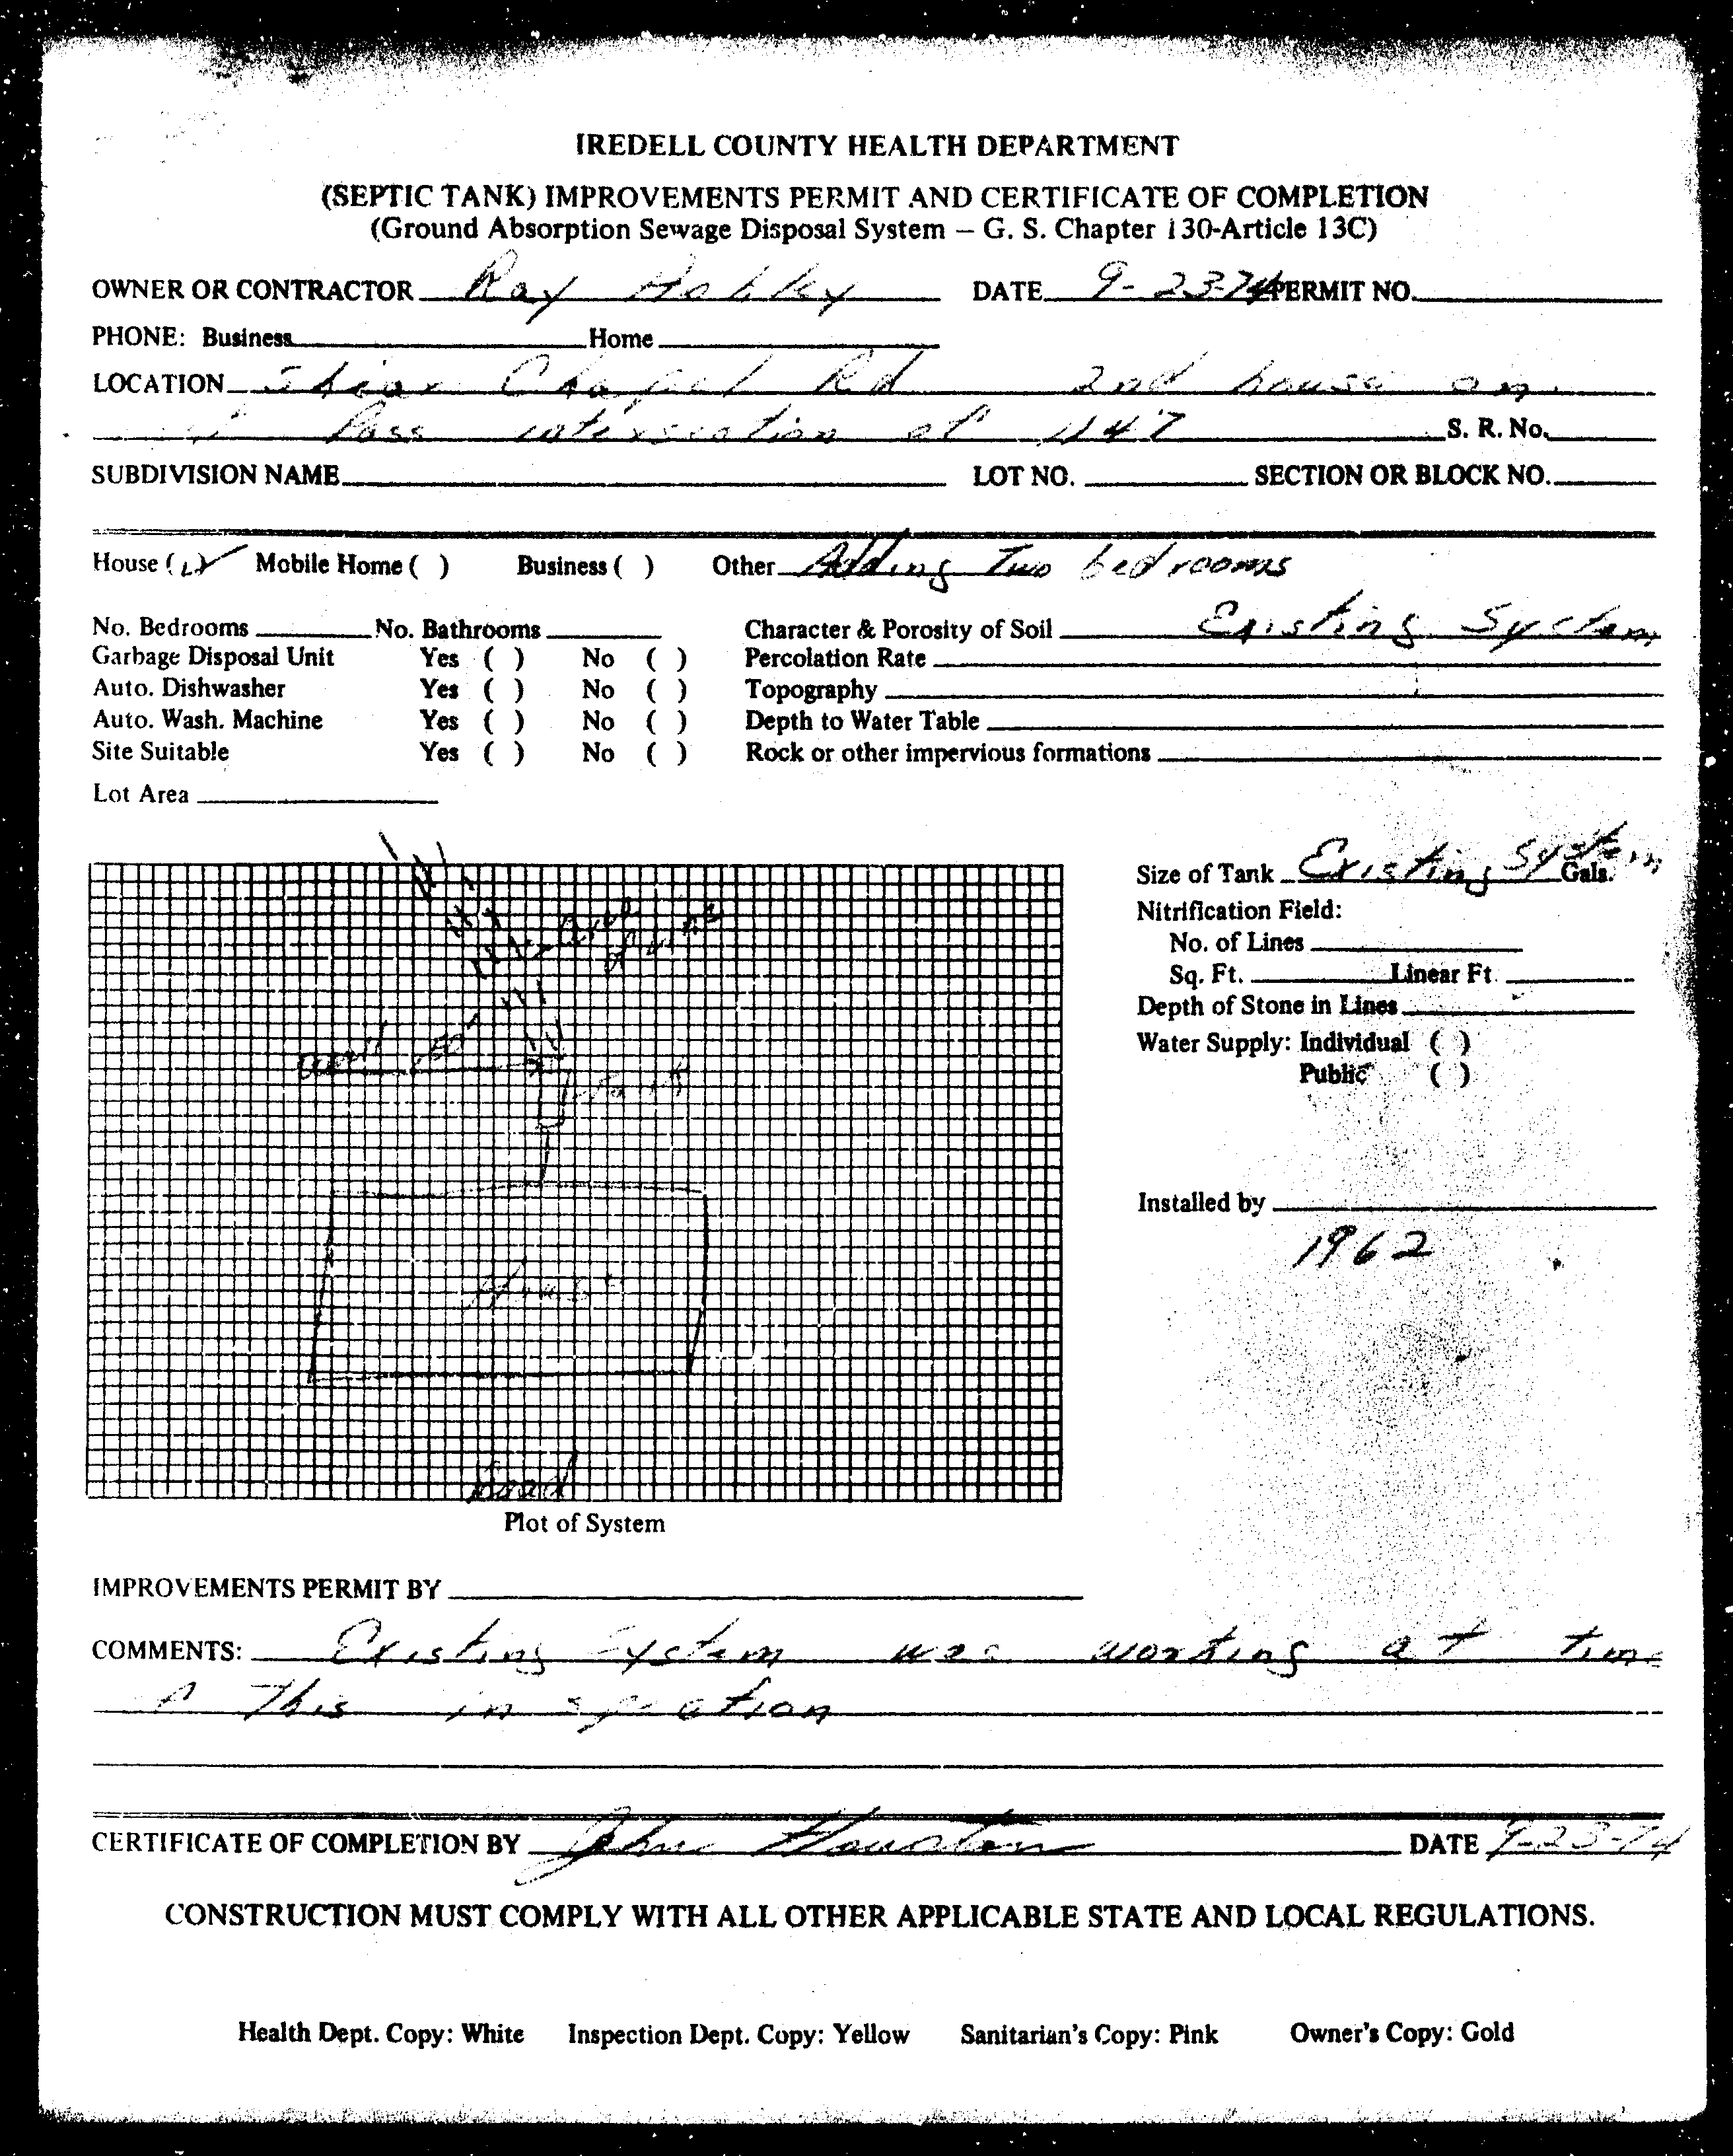 IREDELL COUNTY HEALTH DEPARTMENT
(SEPTIC TANK) IMPROVEMENTS PERMIT AND CERTIFICATE OF COMPLETION
(Ground Absorption Sewage Disposal System – G. S. Chapter 130-Article 13C)
OWNER OR CONTRACTOR Ray DATE 9-23-74 PERMIT NO.
PHONE: Business Home
LOCATION Chapel Rd 2nd house on
Pass intersection of 1147 S. R. No.
SUBDIVISION NAME LOT NO. SECTION OR BLOCK NO.
House (✓) Mobile Home ( ) Business ( ) Other Adding Two bedrooms
No. Bedrooms No. Bathrooms Character & Porosity of Soil Existing System
Garbage Disposal Unit Yes ( ) No ( ) Percolation Rate
Auto. Dishwasher Yes ( ) No ( ) Topography
Auto. Wash. Machine Yes ( ) No ( ) Depth to Water Table
Site Suitable Yes ( ) No ( ) Rock or other impervious formations
Lot Area
Size of Tank Existing System Gals.
Nitrification Field:
No. of Lines
Sq. Ft. Linear Ft.
Depth of Stone in Lines
Water Supply: Individual ( )
Public ( )
well 50'
tank
House
Road
Installed by
1962
Plot of System
IMPROVEMENTS PERMIT BY
COMMENTS: Existing System was working at time
This inspection
CERTIFICATE OF COMPLETION BY John Houston DATE 9-23-74
CONSTRUCTION MUST COMPLY WITH ALL OTHER APPLICABLE STATE AND LOCAL REGULATIONS.
Health Dept. Copy: White Inspection Dept. Copy: Yellow Sanitarian's Copy: Pink Owner's Copy: Gold